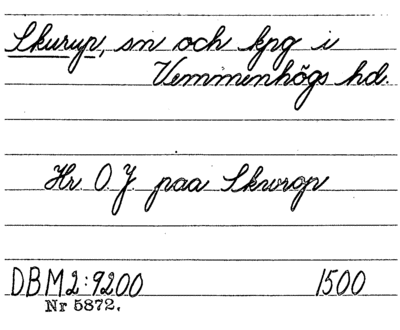 Skurup, sn och kpg i
Vemmenhögs hd.
Hr O. J. paa Skworop
DBM2:9200 1500
Nr 5872.